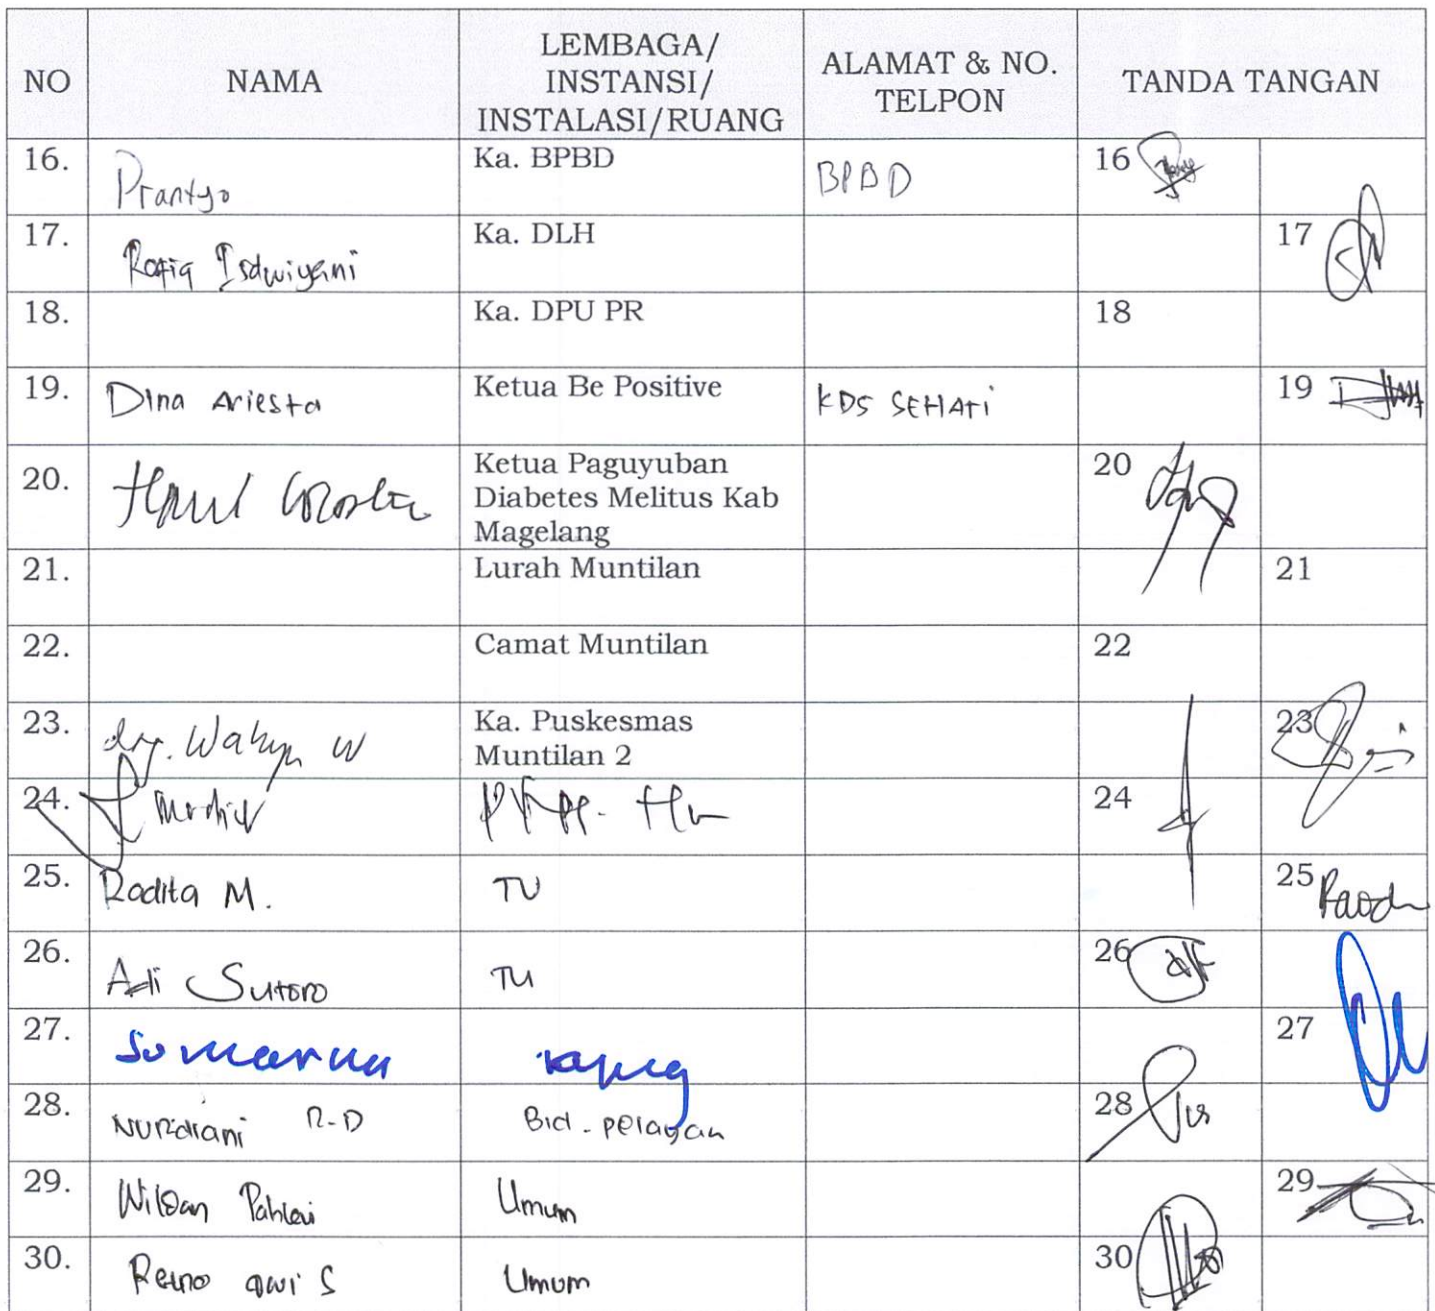 NO NAMA LEMBAGA/ INSTANSI/ INSTALASI/RUANG ALAMAT & NO. TELPON TANDA TANGAN
16. Prantyo Ka. BPBD BPBD 16
17. Rofiq Isdwiyani Ka. DLH 17
18. Ka. DPU PR 18
19. Dina Ariesta Ketua Be Positive KDS SEHATI 19
20. Ketua Paguyuban 20
Diabetes Melitus Kab
Magelang
21. Lurah Muntilan 21
22. Camat Muntilan 22
23. drg. Wahyu W Ka. Puskesmas 23
Muntilan 2
24. 24
25. Radita M. TU 25
26. Adi Sutoro TU 26
27. Sumarna 27
28. Nurdiani R-D Bid-pelayan 28
29. Wildan Pahlevi Umum 29
30. Retno Dwi S Umum 30